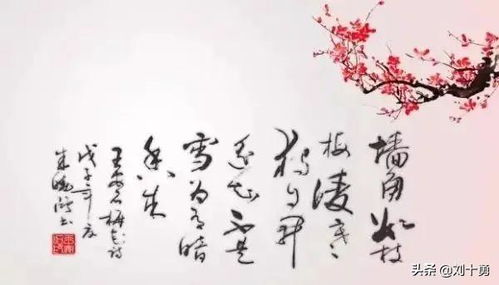 墙角数枝
梅凌寒
独自开
遥知不是
雪为有暗
香来
王安石梅花诗
戊子年夏
头条 @刘十勇